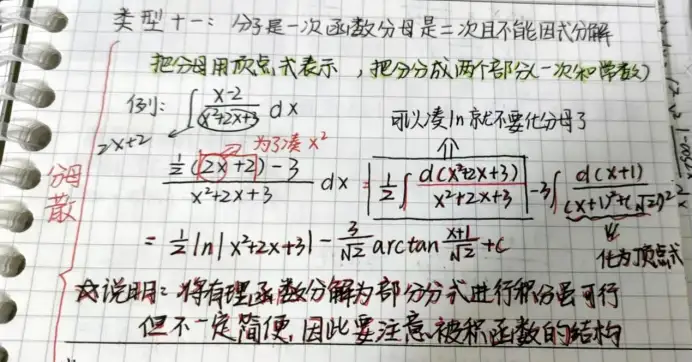 类型十一：分子是一次函数分母是二次且不能因式分解
把分母用顶点式表示，把分分成两个部分(一次和常数)
例：∫ (x-2)/(x²+2x+3) dx
可以凑ln就不要化分母了
2x+2
为了凑x²
(½(2x+2)-3)/(x²+2x+3) dx = ½∫ d(x²+2x+3)/(x²+2x+3) -3∫ d(x+1)/((x+1)²+(√2)²)
化为顶点式
= ½ ln|x²+2x+3| - 3/√2 arctan (x+1)/√2 +C
分母散
☆说明：将有理函数分解为部分分式进行积分虽可行
但不一定简便,因此要注意被积函数的结构